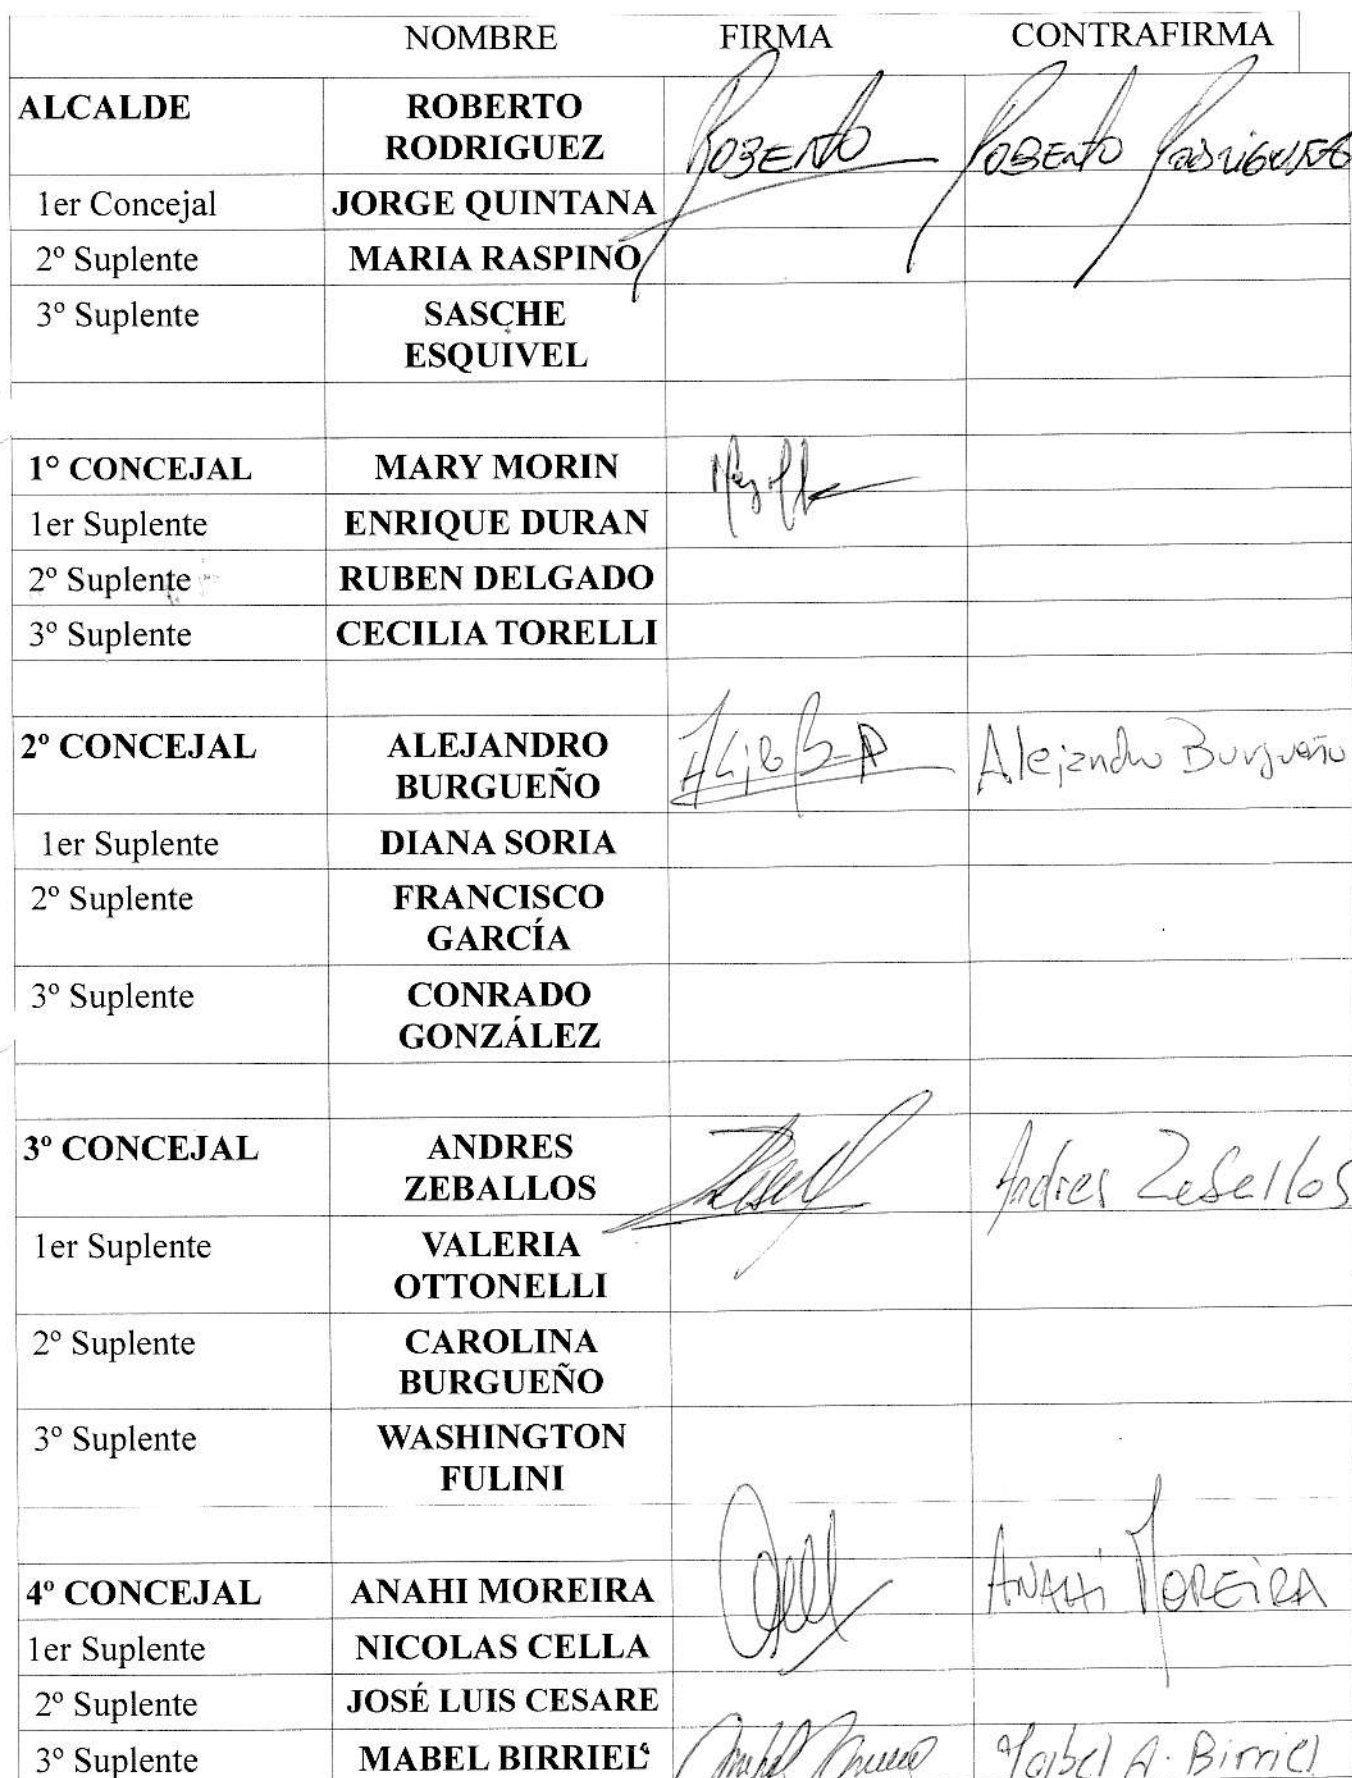 NOMBRE FIRMA CONTRAFIRMA
ALCALDE ROBERTO RODRIGUEZ ROBERTO ROBERTO RODRIGUEZ
1er Concejal JORGE QUINTANA
2º Suplente MARIA RASPINO
3º Suplente SASCHE ESQUIVEL
1° CONCEJAL MARY MORIN
1er Suplente ENRIQUE DURAN
2º Suplente RUBEN DELGADO
3º Suplente CECILIA TORELLI
2º CONCEJAL ALEJANDRO BURGUEÑO Alejandro Burgueño
1er Suplente DIANA SORIA
2º Suplente FRANCISCO GARCÍA
3º Suplente CONRADO GONZÁLEZ
3º CONCEJAL ANDRES ZEBALLOS Andres Zeballos
1er Suplente VALERIA OTTONELLI
2º Suplente CAROLINA BURGUEÑO
3º Suplente WASHINGTON FULINI
4º CONCEJAL ANAHI MOREIRA ANAHi MOREiRA
1er Suplente NICOLAS CELLA
2º Suplente JOSÉ LUIS CESARE
3º Suplente MABEL BIRRIEL Mabel A. Birriel